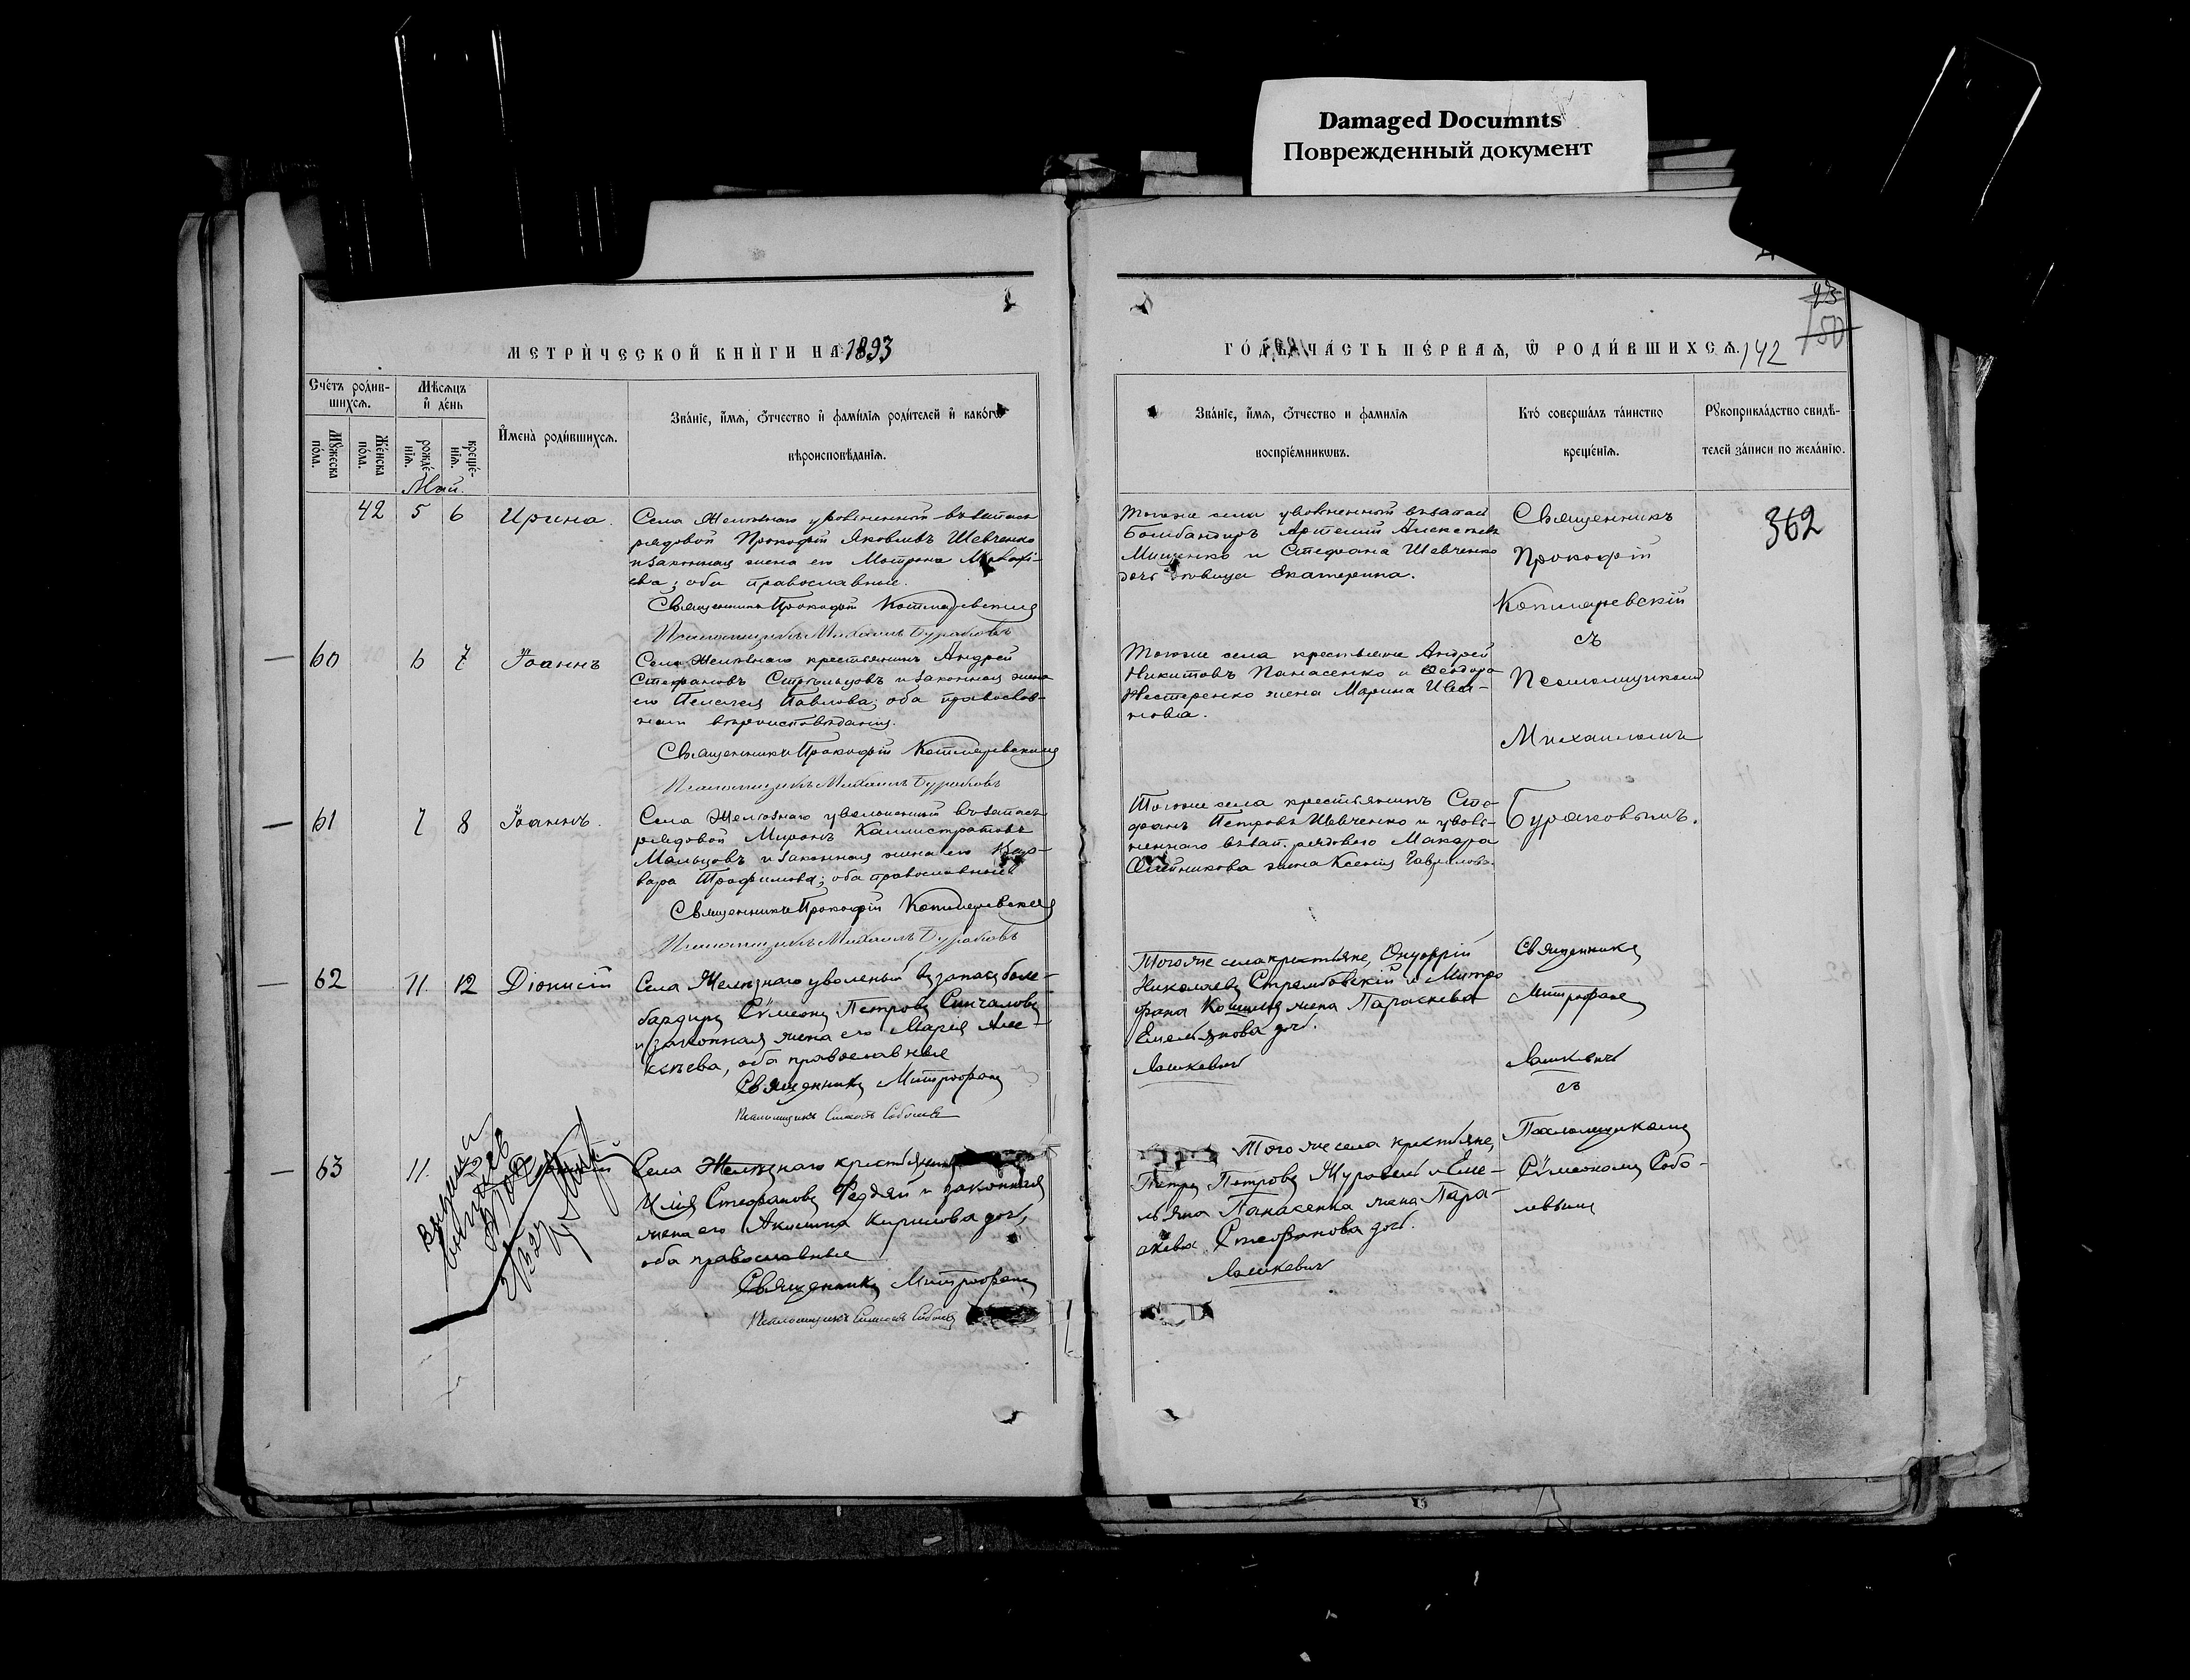 Damaged Documnts
Поврежденный документ
93
150
МЕТРИ́ЧЕСКОЙ КНИ́ГИ НА 1893
ГО́ДЪ ЧА́СТЬ ПЕ́РВАѦ, Ѡ҆ РОДИ́ВШИХСѦ. 142
Сче́тъ роди́в-
шихсѧ.
Мꙋ́жеска по́ла.
Же́нска по́ла.
Мѣ́сѧцъ
и҆ де́нь
рожде́-
нїѧ.
креще́-
нїѧ.
И҆мена̀ роди́вшихсѧ.
Зва́нїе, и҆́мѧ, ѻ҆́тчество и҆ фами́лїѧ роди́телей и҆ како́гѡ
вѣроисповѣ́данїѧ.
Зва́нїе, и҆́мѧ, ѻ҆́тчество и фами́лїѧ
воспрїе́мникѡвъ.
Кто̀ соверша́лъ та́инство
креще́нїѧ.
Рꙋкоприкла́дство свидѣ́-
телей за́писи по жела́нїю.
Май.
42 5 6 Ирина.
Села Желѣзнаго уволенный въ запасъ
рядовой Прокофій Яковлевъ Шевченко
и законная жена его Матрона
ева; оба православные.
Священникъ Прокофій Котляревский
Псаломщикъ Михаилъ Бураковъ
Тогоже села уволенный въ запас
Бомбандиръ Артемій Алексѣевъ
Мищенко и Стефана Шевченко
дочь вдовица Екатерина.
Священникъ
Прокофій
Котляревскій
съ
Псаломщикомъ
Михаиломъ
Бураковымъ.
362
60 6 7 Іоаннъ
Села Желѣзнаго крестьянинъ Андрей
Стефановъ Стрѣльцовъ и законная жена
его Пелагея Павлова; оба православ-
наго вѣроисповѣданія.
Священникъ Прокофій Котляревский
Псаломщикъ Михаилъ Бураковъ
Тогоже села крестьяне Андрей
Никитовъ Панасенко и Ѳеодора
Нестеренко жена Марина Иван-
нова.
61 7 8 Іоаннъ.
Села Желѣзнаго уволенный въ запасъ
рядовой Миронъ Каллистратовъ
Мальцовъ и законная жена его Вар-
вара Трофимова; оба православные
Священникъ Прокофій Котляревский
Псаломщикъ Михаилъ Бураковъ
Тогоже села крестьянинъ Сте-
фанъ Петровъ Шевченко и уволь-
неннаго въ зап. рядового Макара
Олейникова жена Ксенія Гаврилова.
62 11 12 Діонисій
Села Желѣзнаго уволеный въ запасъ бом-
бардиръ Сѵмеонъ Петровъ
и законная жена его Марія Але-
ксѣева, оба православные
Священникъ Митрофанъ
Лашкевичъ
Псаломщикъ Симеонъ Соболевъ
Того же села крестьяне, Онуфрій
Николаевъ Стрембовскій и Митро
фана жена Параскева
Емельянова доч.
Священникъ
Митрофанъ
Лашкевичъ
съ
Псаломщикомъ
Сѵмеономъ Собо-
левымъ
63 11
Села Желѣзнаго крестьянинъ
Илія Стефановъ и законная
жена его Акилина Кирилова доч,
оба православные
Священникъ Митрофанъ
Лашкевичъ
Псаломщикъ Симеонъ Соболевъ
Того же села крестьяне,
Петръ Петровъ Журавель и Еме-
льяна Панасенка жена Пара-
скева Стефанова доч.